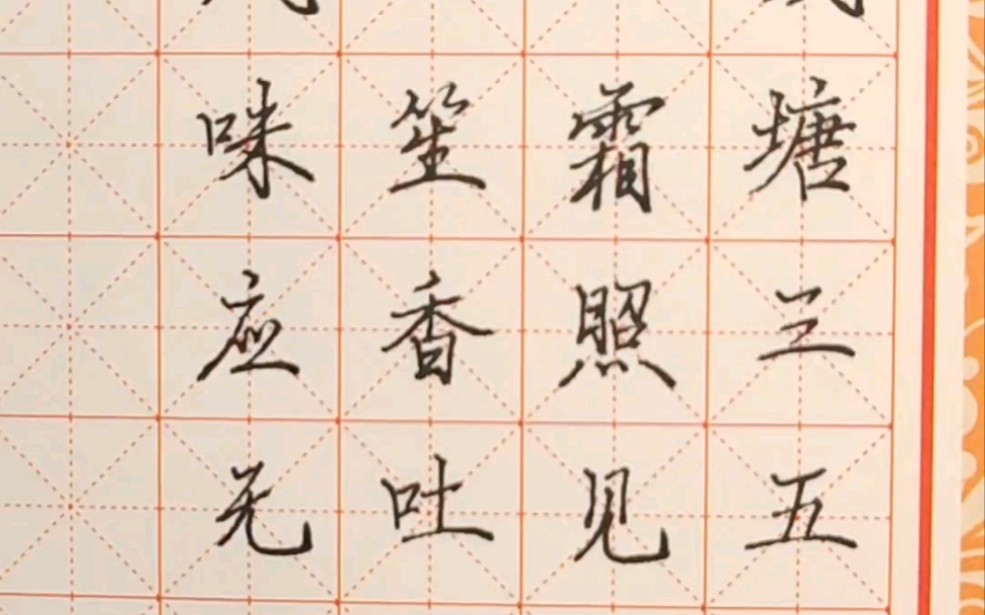 塘三五
霜照见
笙香吐
咪应无